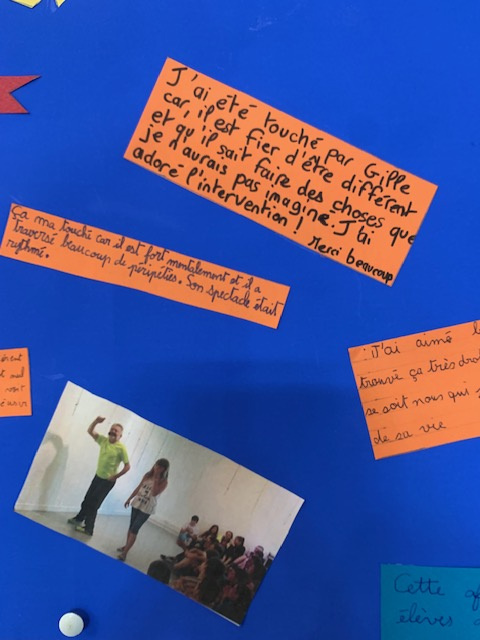 J'ai été touché par Gille
car, il est fier d'être différent
et qu'il sait faire des choses que
je n'aurais pas imaginé. J'ai
adoré l'intervention !
Merci beaucoup
Ça ma touché car il est fort mentalement et il a
traversé beaucoup de péripéties. Son spectacle était
rythmé.
J'ai aimé
trouvé ça très
se soit nous qui
de sa vie
Cette
élèves